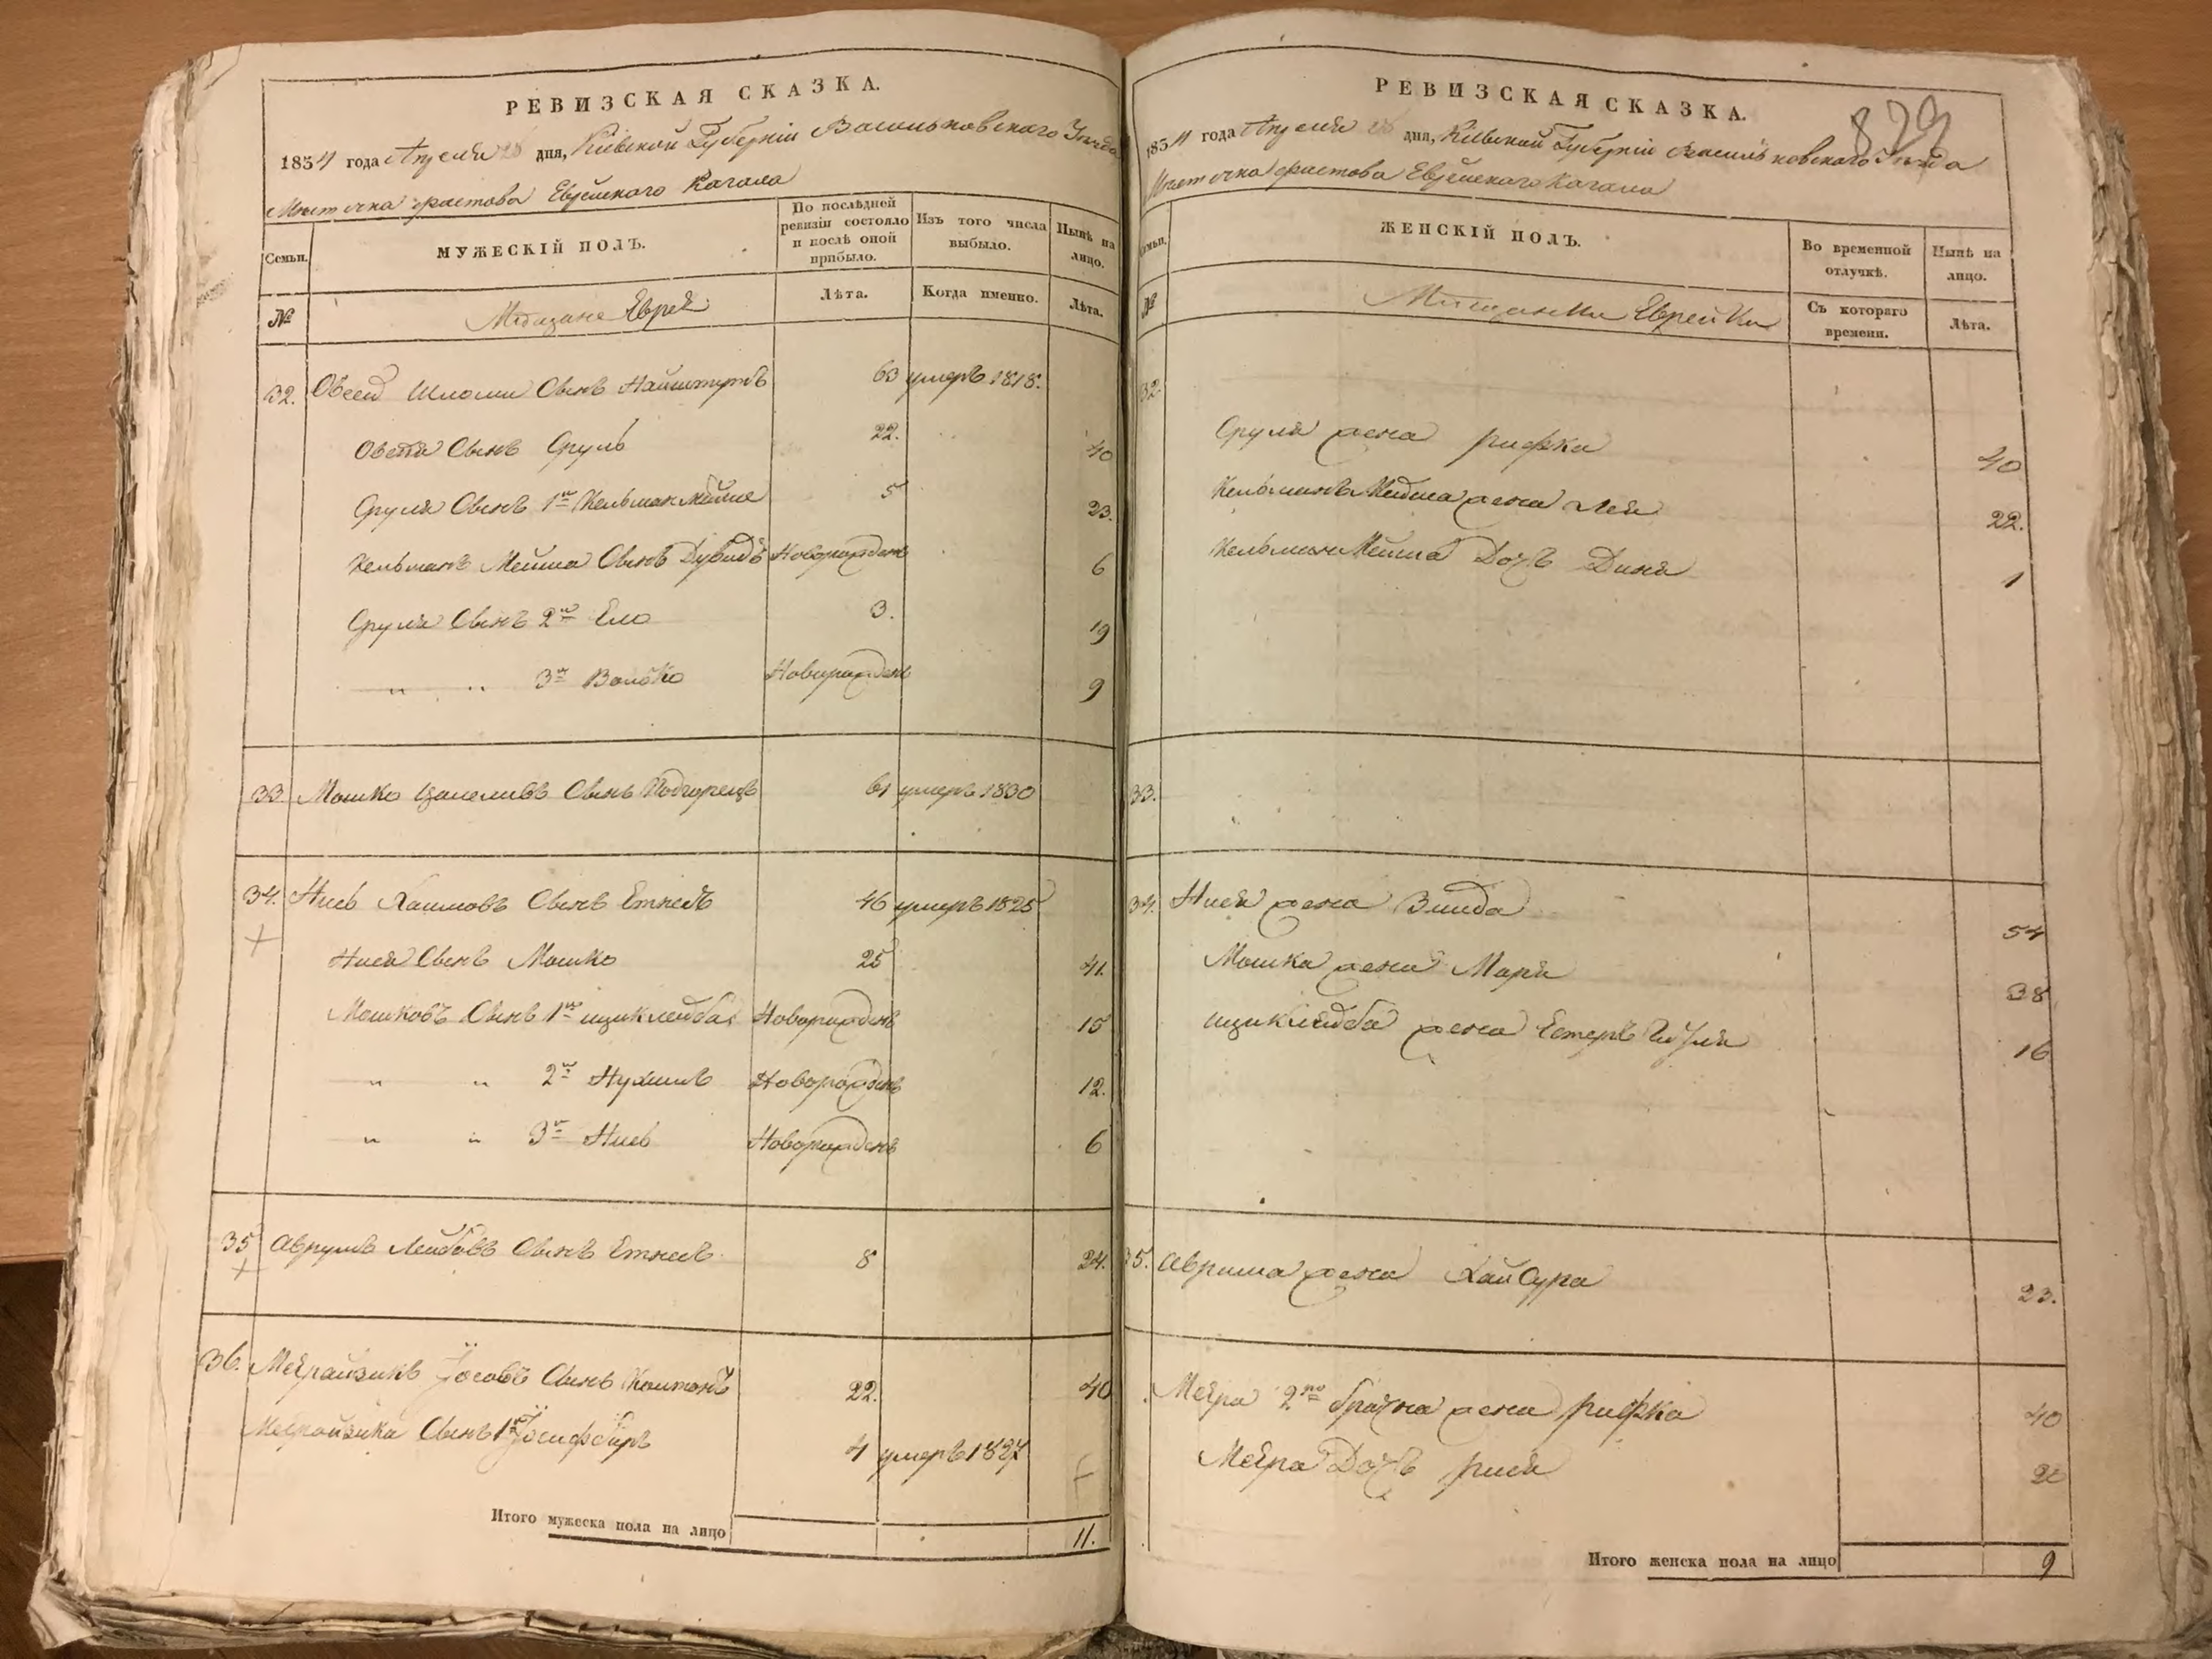 РЕВИЗСКАЯ СКАЗКА.
1834 года Апреля 28 дня, Кіевской Губерніи Васильковского Уезда
Местечка Фастова Еврейского Кагала
Семьи.
МУЖЕСКІЙ ПОЛЪ.
По послѣдней ревизіи состояло и послѣ оной прибыло.
Изъ того числа выбыло.
Нынѣ на лицо.
№
Мещане Евреи
Лѣта.
Когда именно.
Лѣта.
32. Овсей Шломи Сынъ 63 умеръ 1818.
Овсея Сынъ Сруль 22. 40
Сруля Сынъ 1й Кельман Мейше 5 23.
Кельманъ Мейша Сынъ Дувидъ Новорожденъ 6
Сруля Сынъ 2й Ело 3. 19
„ „ 3й Волько Новорожденъ 9
33. Мошко Сынъ Подгорецъ 61 умеръ 1830
34. Нисъ Хаимовъ Сынъ Етнесъ 46 умеръ 1825
Нися Сынъ Мошко 25 41.
Мошковъ Сынъ 1й ицик лейба Новорожденъ 15
„ „ 2й Нухимъ Новорожденъ 12.
„ „ 3й Нисъ Новорожденъ 6
35 Аврумъ Лейбовъ Сынъ Етнесъ 8 24.
36. Меерайзикъ Іосовъ Сынъ 22. 40
Меерайзика Сынъ 1й 4 умеръ 1827
Итого мужеска пола на лицо 11.
829
РЕВИЗСКАЯ СКАЗКА.
1834 года Апреля 28 дня, Кіевской Губерніи Васильковского Уезда
Местечка Фастова Еврейского Кагала
Семьи.
ЖЕНСКІЙ ПОЛЪ.
Во временной отлучкѣ.
Нынѣ на лицо.
№
Мещанки Еврейки
Съ котораго времени.
Лѣта.
32.
Сруля жена рифка 40
Кельманъ Мейша жена Лея 22.
Кельман Мейша Дочь Диня 1
33.
34. Нися жена Зинда 54
Мошка жена Маря 38
ицик лейба жена Естеръ 16
35. Аврума жена Хай Сура 23.
Меера 2го брачна жена рифка 40
Меера Дочь рися 20
Итого женска пола на лицо 9